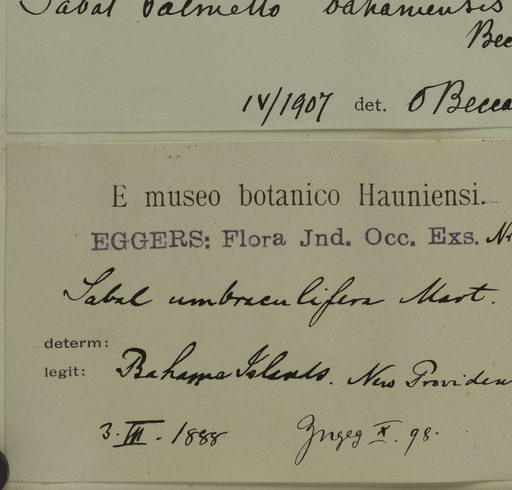 Sabal Palmetto bahamensis
Bec
IV/1907 det. O Becca
E museo botanico Hauniensi.
EGGERS: Flora Jnd. Occ. Exs. Nr
Sabal umbraculifera Mart.
determ:
legit: Bahama Islands. New Providen
3. III. 1888 X. 98.